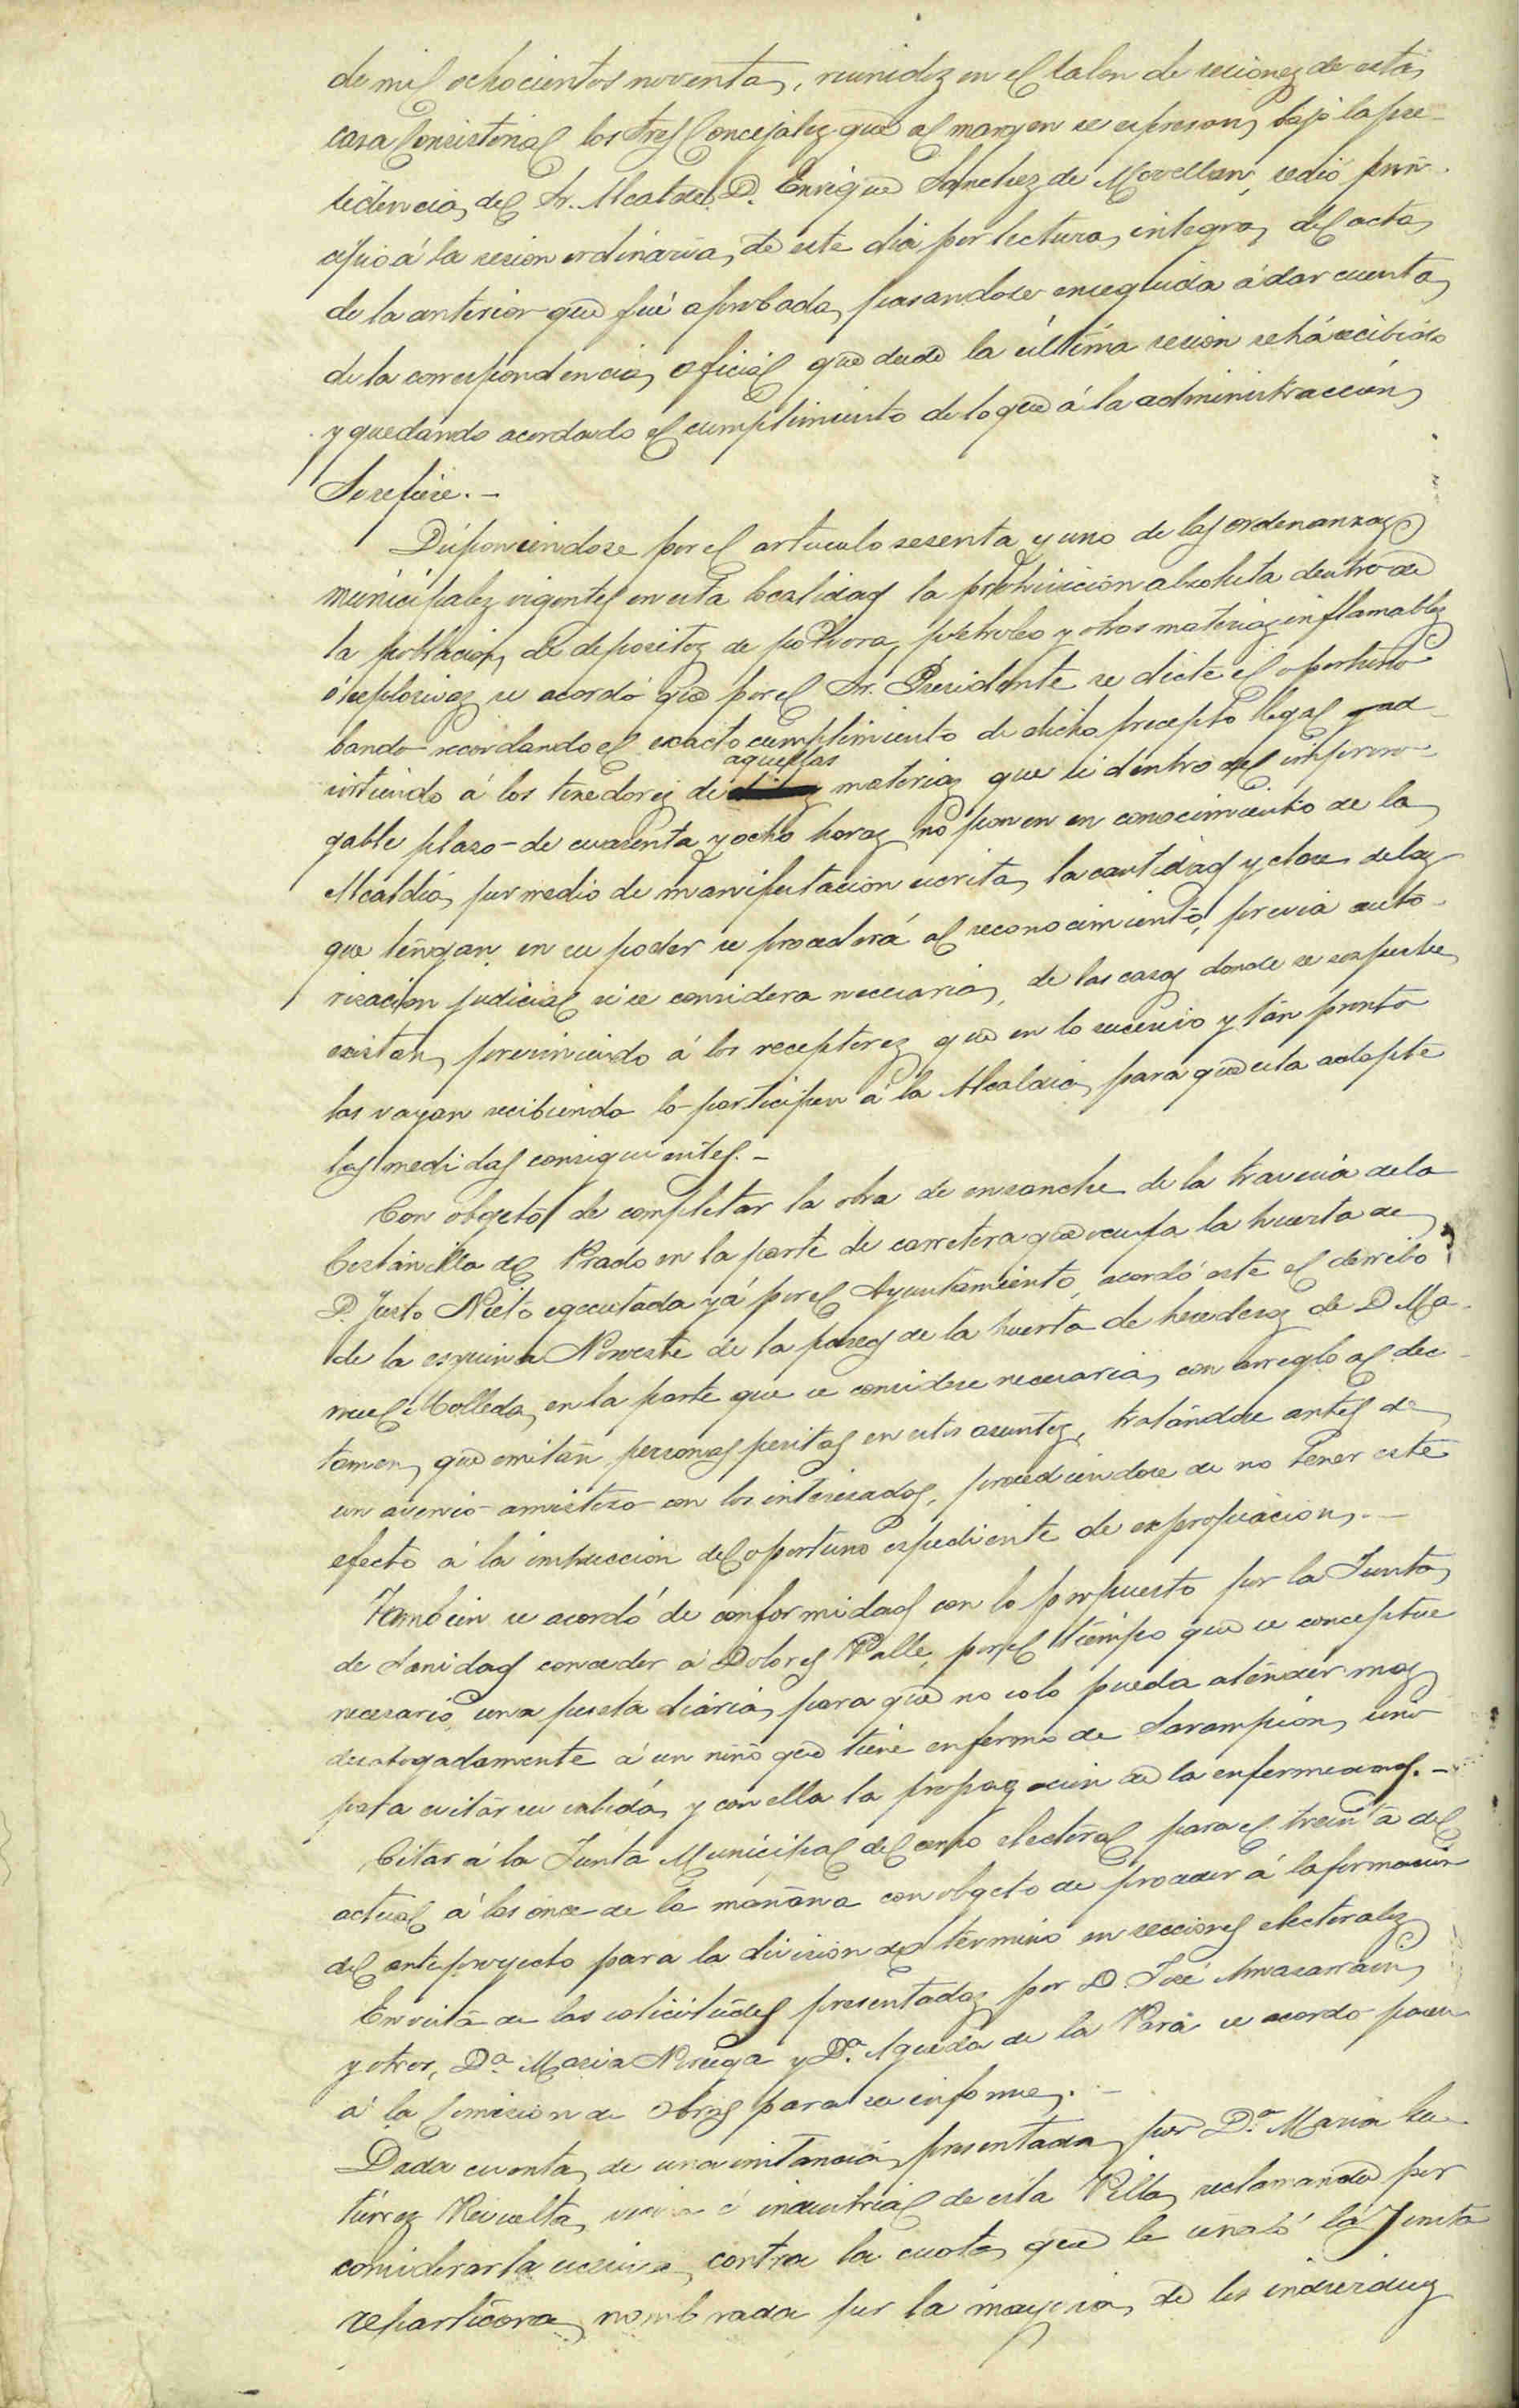 de mil ochocientos noventa, reunidos en el salon de sesiones de esta
casa Consistorial los Sres Concejales que al margen se espresan, bajo la pre-
sidencia, del Sr. Alcalde D. Enrique Sanchez de Movellan, se dió prin-
cipio á la sesion ordinaria, de este dia por lectura, integra, del acta,
de la anterior que fué aprobada, pasandose enseguida á dar cuenta,
de la correspondencia, oficial que desde la última sesion se há recibido
y quedando acordado el cumplimiento de lo que á la administracción,
se refiere.-
Disponiendose por el articulo sesenta y uno de las ordenanzas
municipales vigentes en esta localidad la prohivición absoluta dentro de
la población, de depositos de polvora, petroleo y otras materias inflamables
ó explosivas se acordó que por el Sr. Presidente se dicte el oportuno
bando recordando el exacto cumplimiento de dicho precepto legal y ad-
virtiendo á los tenedores de aquellas materias que si dentro del improrro-
gable plazo de cuarenta y ocho horas no ponen en conocimiento de la,
Alcaldia, por medio de manifestación escrita, la cantidad y clase de las
que tengan en su poder se procederá al reconocimiento, previa auto-
rización judicial si se considera necesaria, de las casas donde se sospeche,
existan, previniendo á los receptores que en lo sucesivo y tán pronto
las vayan recibiendo lo participen á la Alcaldia, para que esta adopte
las medidas consiguientes.-
Con objeto de completar la obra de ensanche de la travesia de la
Castanilla del Prado en la parte de carretera que ocupa la huerta de,
D. Justo Nieto egecutada yá por el Ayuntamiento, acordó este el derribo
de la esquina Noroeste de la pared de la huerta de herederos de D. Ma-
nuel Molleda, en la parte que se considere necesaria, con arreglo al dic-
tamen, que emitan personas peritas en estos asuntos, tratándose antes de
un avenio amistoso con los interesados, procediendose de no tener este
efecto á la instrucción del oportuno espediente de expropiacion,.-
Tambien se acordó de conformidad con lo propuesto por la Junta,
de Sanidad conceder á Dolores Valle, por el tiempo que se conceptue
necesario, una peseta diaria, para que no solo pueda atender mas
desahogadamente á un niño que tiene enfermo de Sarampión, sino
para evitar su salida, y con ella la propagación de la enfermedad.-
Citar á la Junta Municipal del censo electoral para el treinta del
actual á las once de la mañana con objeto de proceder á la formación
del anteproyecto para la division del término en secciones electorales
En vista de las solicitudes presentadas por D. José Amasarrain,
y otros, Dª. Maria Noriega y Dª. Agueda de la Vara se acordó pasen
á la Comision de Obras para su informe,.-
Dada cuenta, de una instancia, presentada, por Dª. Maria Gu-
tierrez Revuelta, vecina é industrial de esta Villa, reclamando por
considerarla escesiva, contra la cuota, que le señaló la Junta
repartidora, nombrada por la mayoria, de los individuos